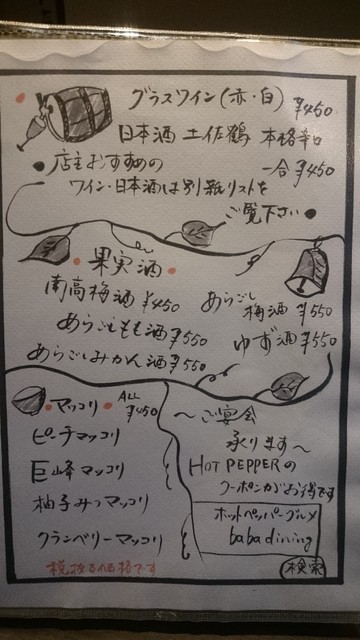 グラスワイン(赤・白) ¥450
日本酒 土佐鶴 本格辛口
一合 ¥450
●店主おすすめの
ワイン・日本酒は別紙リストを
ご覧下さい●
果実酒
南高梅酒 ¥450
あらごしもも酒 ¥550
あらごしみかん酒 ¥550
あらごし梅酒 ¥550
ゆず酒 ¥550
マッコリ ALL ¥450
ピーチマッコリ
巨峰マッコリ
柚子みつマッコリ
クランベリーマッコリ
税抜き価格です
〜ご宴会
承ります〜
HOT PEPPERの
クーポンがお得です
ホットペッパーグルメ
baba dining
検索